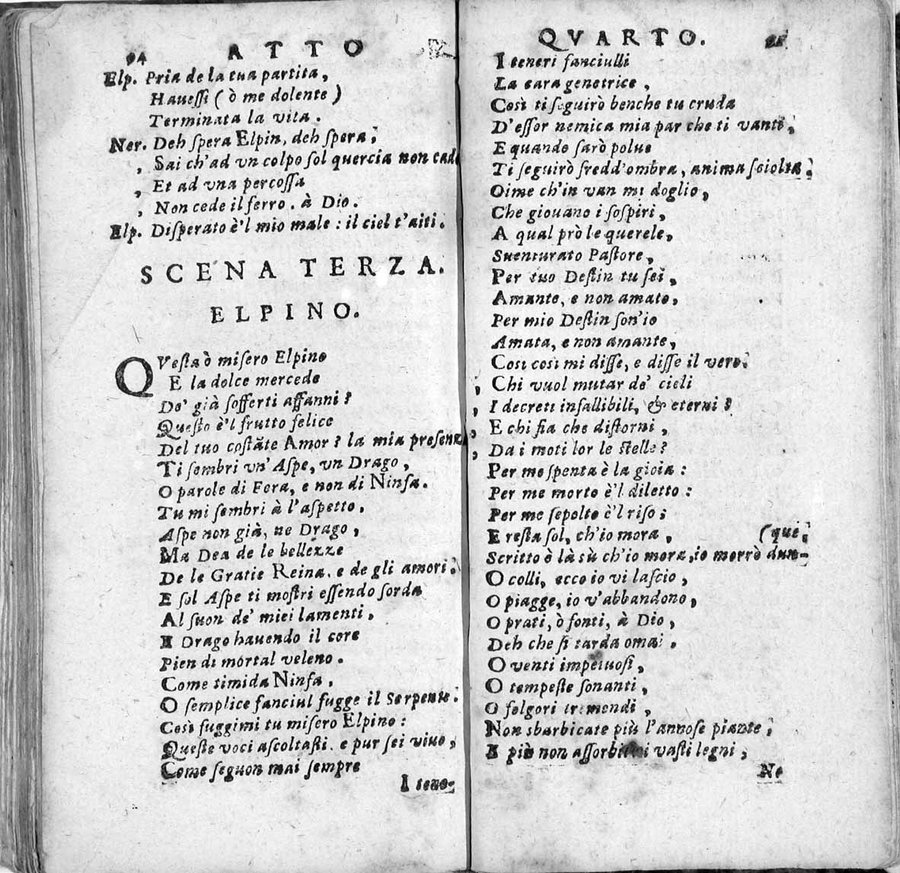 94 ATTO
Elp. Pria de la tua partita,
Hauessi (ò me dolente)
Terminata la vita.
Ner. Deh spera Elpin, deh spera;
, Sai ch'ad vn colpo sol quercia non cade
, Et ad vna percossa
, Non cede il ferro. à Dio.
Elp. Disperato è'l mio male: il ciel t'aiti.
SCENA TERZA.
ELPINO.
QVesta ò misero Elpino
E la dolce mercede
De' già sofferti affanni?
Questo è'l frutto felice
Del tuo costãte Amor? la mia presenza,
Ti sembri vn' Aspe, vn Drago,
O parole di Fera, e non di Ninfa.
Tu mi sembri à l'aspetto,
Aspe non già, ne Drago,
Ma Dea de le bellezze
De le Gratie Reina, e de gli amori:
E sol Aspe ti mostri essendo sorda
Al suon de' miei lamenti,
E Drago hauendo il core
Pien di mortal veleno.
Come timida Ninfa,
O semplice fanciul fugge il Serpente:
Così fuggimi tu misero Elpino:
Queste voci ascoltasti, e pur sei viuo,
Come seguon mai sempre
I tene-
QVARTO.
I teneri fanciulli
La cara genetrice,
Così ti seguirò benche tu cruda
D'esser nemica mia par che ti vanti,
E quando sarò polue
Ti seguirò fredd'ombra, anima sciolta.
Oime ch'in van mi doglio,
Che giouano i sospiri,
A qual prò le querele,
Suenturato Pastore,
Per tuo Destin tu sei,
Amante, e non amato,
Per mio Destin son'io
Amata, e non amante,
Così così mi disse, e disse il vero.
, Chi vuol mutar de' cieli
, I decreti infallibili, & eterni?
, E chi fia che distorni,
, Da i moti lor le stelle?
Per me spenta è la gioia:
Per me morto è'l diletto:
Per me sepolto è'l riso;
E resta sol, ch'io mora, (que,
Scritto è là sù ch'io mora, io morrò dun-
O colli, ecco io vi lascio,
O piagge, io v'abbandono,
O prati, ò fonti, à Dio,
Deh che si tarda omai.
O venti impetuosi,
O tempeste sonanti,
O folgori tremendi,
Non sbarbicate più l'annose piante;
E più non assorbite i vasti legni;
Ne